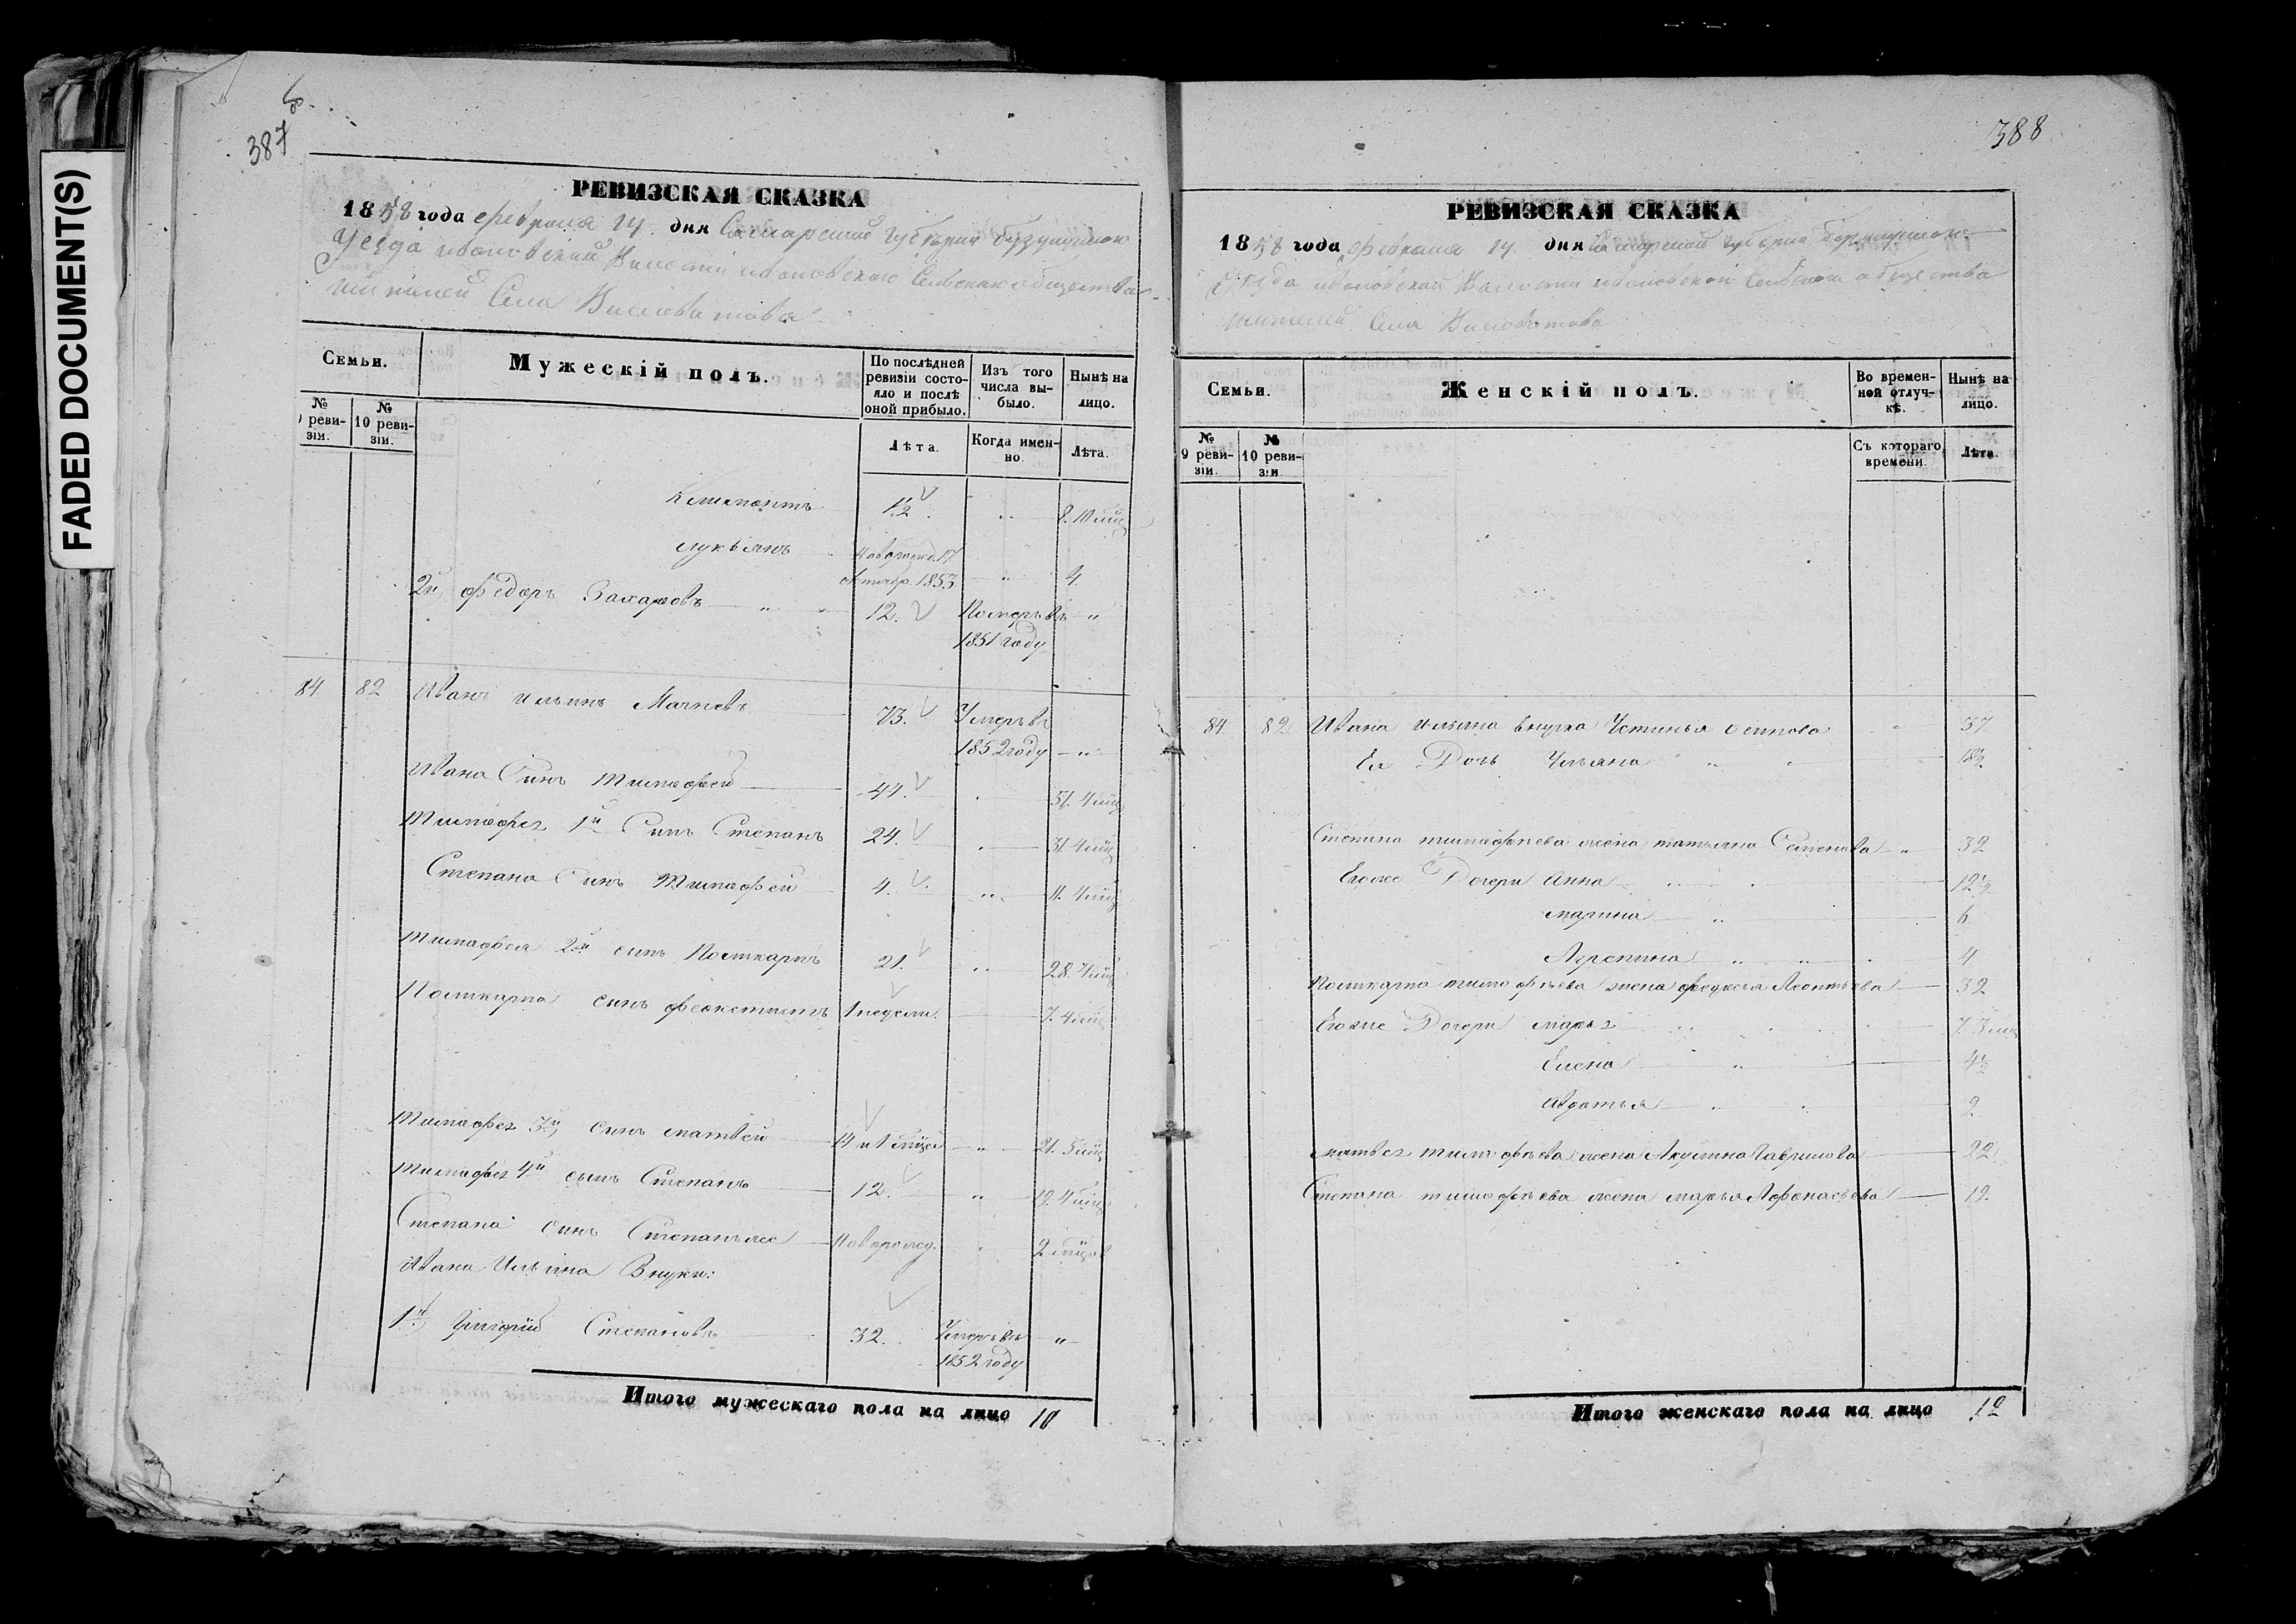 FADED DOCUMENT(S)
387
388
РЕВИЗСКАЯ СКАЗКА
1858 года февраля 14 дня Самарской губернии бузулукскаго
Уезда ивановской Волости ивановского Сельского общества
жителей Села Виловатова
Семьи.
Мужескiй полъ.
По послѣдней ревизiи состояло и послѣ оной прибыло.
Изъ того числа выбыло.
Нынѣ на лицо.
№ реви-зiи.
№ 10 реви-зiи.
Лѣта.
Когда имен-но.
Лѣта.
1/2 8. 10 мцъ
лукьянъ новорожд. 17
октябр. 1853 " 4
2й федоръ Захаровъ 12. Померъ въ "
1851 году
84 82 Иванъ ильинъ 73. Умеръ въ
1852 году "
Ивана Сынъ тимофей 44. 51. 4 мцъ
тимофея 1й Сынъ Степанъ 24. 31. 4 мцъ
Степана Сынъ тимофей 4. " 11. 4 мцъ
тимофея 2й сынъ Поликарпъ 21. " 28. 4 мцъ
Поликарпа сынъ феоктистъ 1 недели. 7. 4 мцъ
тимофея 3й сынъ матвей 14 " 21. 5 мцъ
тимофея 4й сынъ Степанъ 12. " 19. 4 мцъ
Степана сынъ Степанъ же новорожд. 2 мцов
Ивана Ильина Внуки:
1й Григорий Степановъ 32. Умеръ въ "
1852 году
Итого мужескаго пола на лицо 10
РЕВИЗСКАЯ СКАЗКА
1858 года февраля 14 дня Самарской губернии бузулукскаго
Уезда ивановской Волости ивановского Сельского общества
жителей Села Виловатова
Семьи.
Женскiй полъ.
Во времен-ной отлуч-кѣ.
Нынѣ на лицо.
№ 9 реви-зiи.
№ 10 реви-зiи.
Съ котораго времени.
Лѣта.
84 82 Ивана ильина внучка Устинья осипова 37
Ея Дочь Ульяна " 18½
Степана тимофеева жена татьяна Семенова " 32
Егоже Дочери Анна 12½
марина " 6
4
Поликарпа тимофеева жена федосья Леонтьева 32
Егоже Дочери марья 7. 3 мц
Елена " 4½
Авдотья " 2
матвея тимофеева жена Акулина Гаврилова 22
Степана тимофеева жена марья Афонасьева 19.
Итого женскаго пола на лицо 12